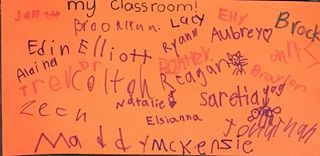 my classroom!
Brooklynn. Lucy Elly Brock
Edin Elliott Ryann Aubrey
Alaina
Trektor Colton Reagan Braylen
Natalie saretia
Zech Elsianna Johnathan
Maddy McKenzie